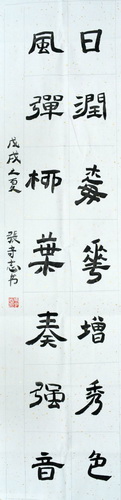 日潤梅華增秀色
風彈柳葉奏强音
戊戌人夏 張寺志书